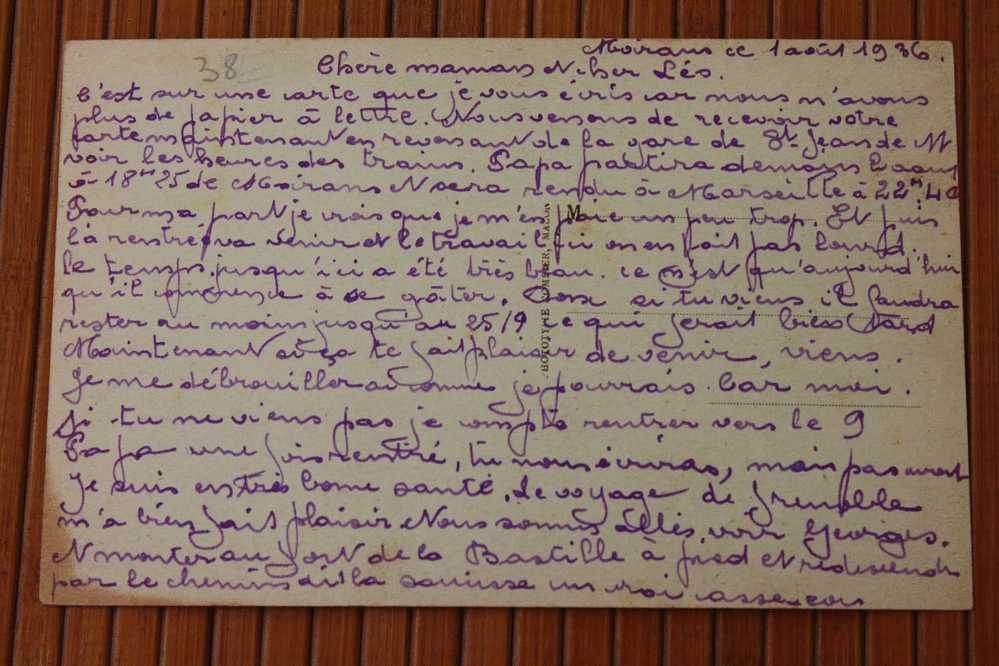 38
Moirans ce 1 août 1936.
Chère maman et cher Léo.
C'est sur une carte que je vous écris car nous n'avons
plus de papier à lettre. Nous venons de recevoir votre
carte maintenant en revenant de la gare de St Jean de M
voir les heures des trains. Papa partira demain 2 aout
à 18 hrs 25 de Moirans et sera rendu à Marseille à 22 hrs 40
Pour ma part je crois que je m'en paie un peu trop. Et puis
la rentrée va venir et le travail on en fait pas lourd.
le temps jusqu'ici a été très beau. ce n'est qu'aujourd'hui
qu'il commence à se gâter. si tu viens il faudra
rester au moins jusqu'au 25/9 ce qui ferait bien tard
Maintenant si ça te fait plaisir de venir, viens.
Je me débrouillerai comme je pourrais. Car moi.
Si tu ne viens pas je compte rentrer vers le 9
Papa une fois rentré, tu nous écriras, mais pas avant
Je suis en très bonne santé. Le voyage de Grenoble
m'a bien fait plaisir. Nous sommes allés voir Georges.
et monter au fort de la Bastille à pied et redescendre
par le chemin un vrai casse-cou
M
PHOTOTYPIE COMBIER, MACON